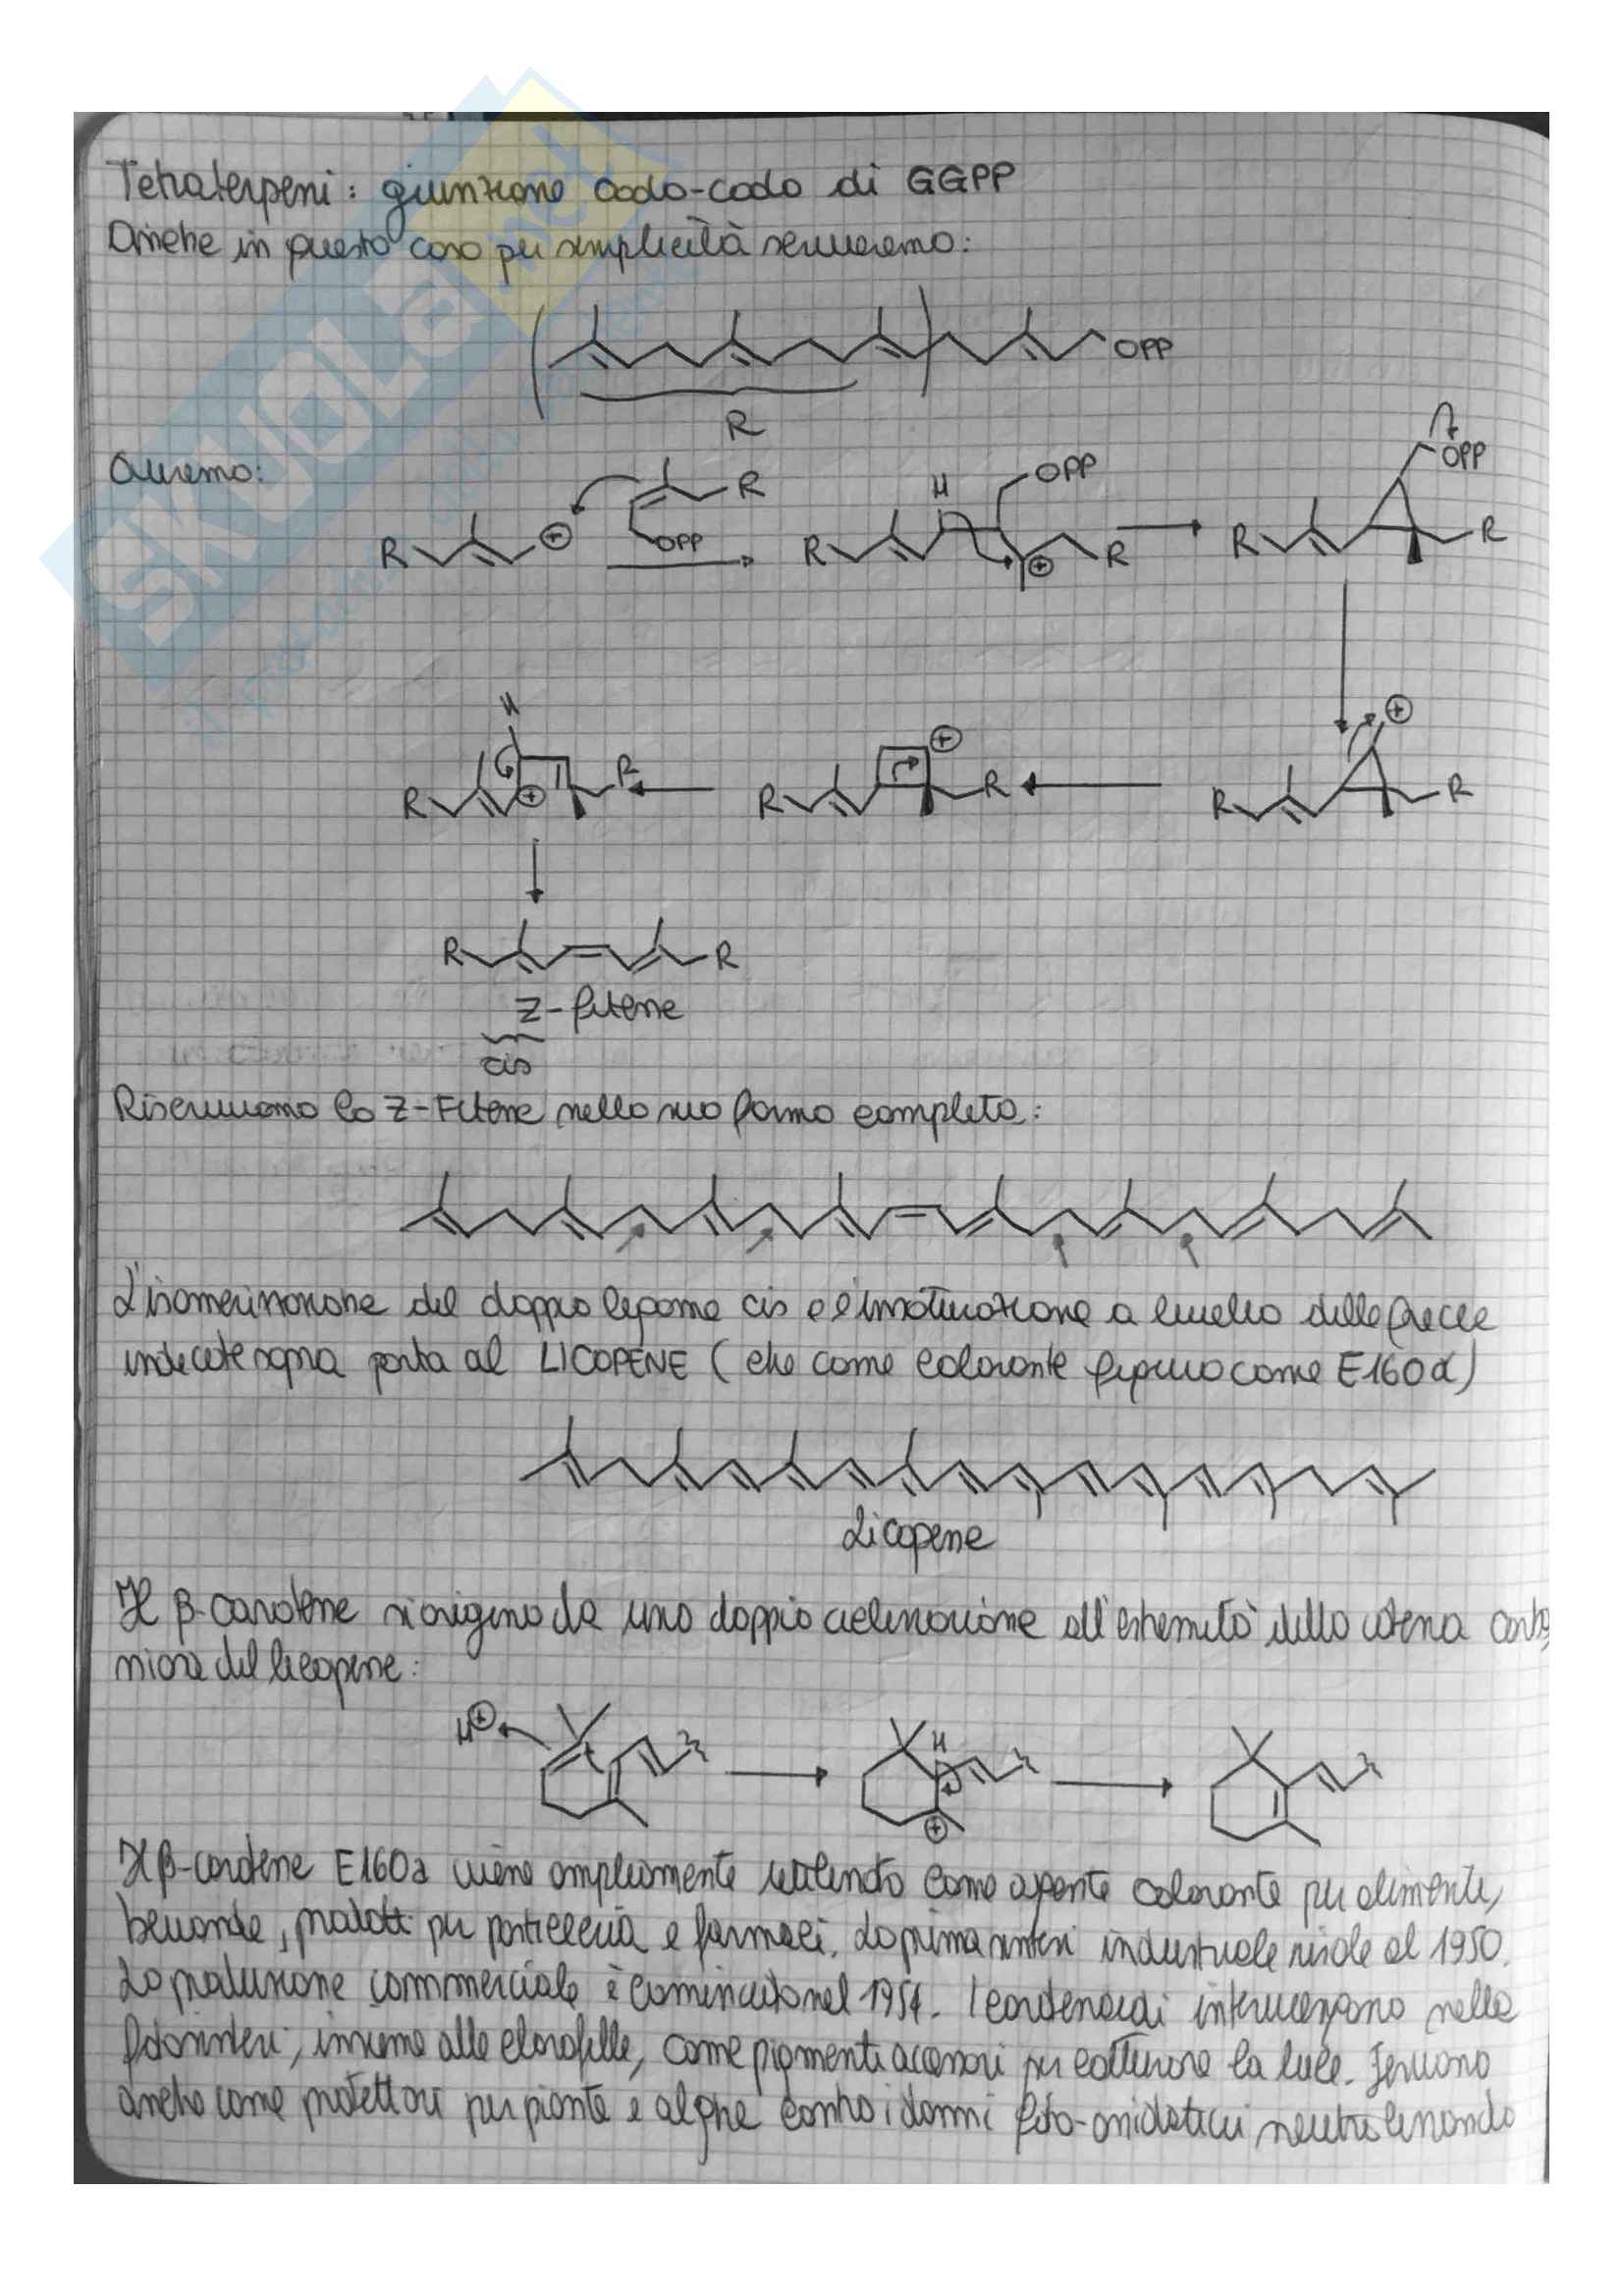 Tetraterpeni: giunzione coda-coda di GGPP
Anche in questo caso per semplicità scriveremo:
OPP
R
Avremo:
R ⊕ R OPP
R H OPP ⊕ R
R OPP R
R H ⊕ R
R ⊕ R
R ⊕ R
R R
Z-fitene
cis
Riscriviamo lo Z-Fitene nella sua forma completa:
L'isomerizzazione del doppio legame cis e l'insaturazione a livello delle frecce
indicate sopra porta al LICOPENE (che come colorante figura come E160d)
Licopene
Il β-carotene si origina da una doppia ciclizzazione all'estremità della catena carbo
niosa del licopene:
H⊕
H ⊕
Il β-carotene E160a viene ampiamente utilizzato come agente colorante per alimenti,
bevande, prodotti per pasticceria e farmaci. La prima sintesi industriale risale al 1950.
La produzione commerciale è cominciata nel 1954. I carotenoidi intervengono nella
fotosintesi, insieme alle clorofille, come pigmenti accessori per catturare la luce. Servono
anche come protettori per piante e alghe contro i danni foto-ossidativi neutralizzando
SKUOLA.net